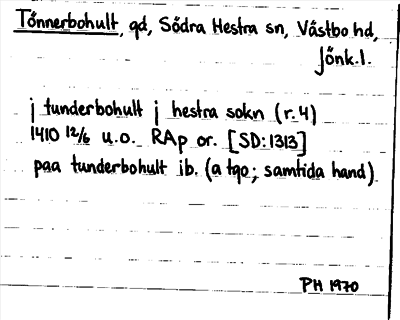 Tönnerbohult, gd, Södra Hestra sn, Västbo hd,
Jönk.l.
j tunderbohult j hestra sokn (r.4)
1410 12/6 u.o. RAp or. [SD:1313]
paa tunderbohult ib. (a tgo; samtida hand).
PH 1970